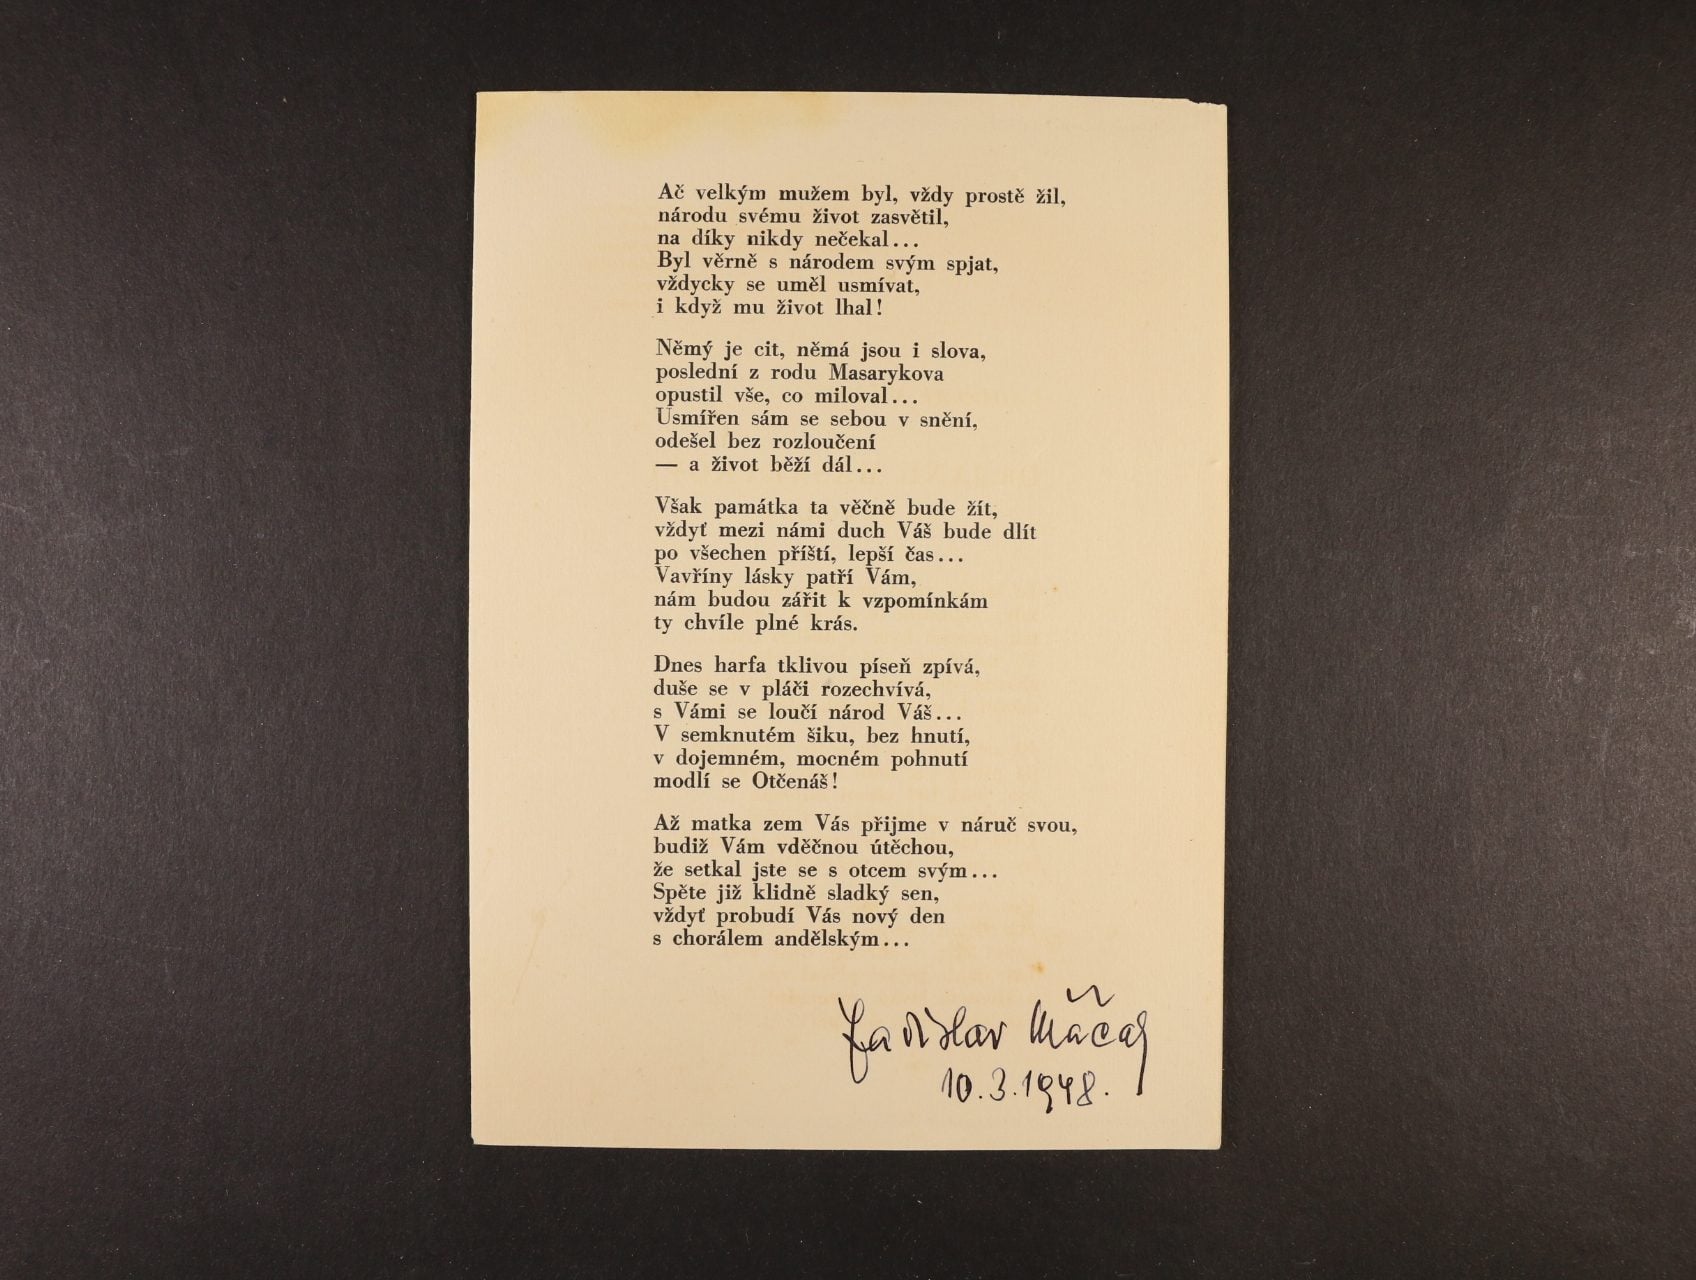 Ač velkým mužem byl, vždy prostě žil,
národu svému život zasvětil,
na díky nikdy nečekal...
Byl věrně s národem svým spjat,
vždycky se uměl usmívat,
i když mu život lhal!
Němý je cit, němá jsou i slova,
poslední z rodu Masarykova
opustil vše, co miloval...
Usmířen sám se sebou v snění,
odešel bez rozloučení
— a život běží dál...
Však památka ta věčně bude žít,
vždyť mezi námi duch Váš bude dlít
po všechen příští, lepší čas...
Vavříny lásky patří Vám,
nám budou zářit k vzpomínkám
ty chvíle plné krás.
Dnes harfa tklivou píseň zpívá,
duše se v pláči rozechvívá,
s Vámi se loučí národ Váš...
V semknutém šiku, bez hnutí,
v dojemném, mocném pohnutí
modlí se Otčenáš!
Až matka zem Vás přijme v náruč svou,
budiž Vám vděčnou útěchou,
že setkal jste se s otcem svým...
Spěte již klidně sladký sen,
vždyť probudí Vás nový den
s chorálem andělským...
Ladislav
10.3.1948.